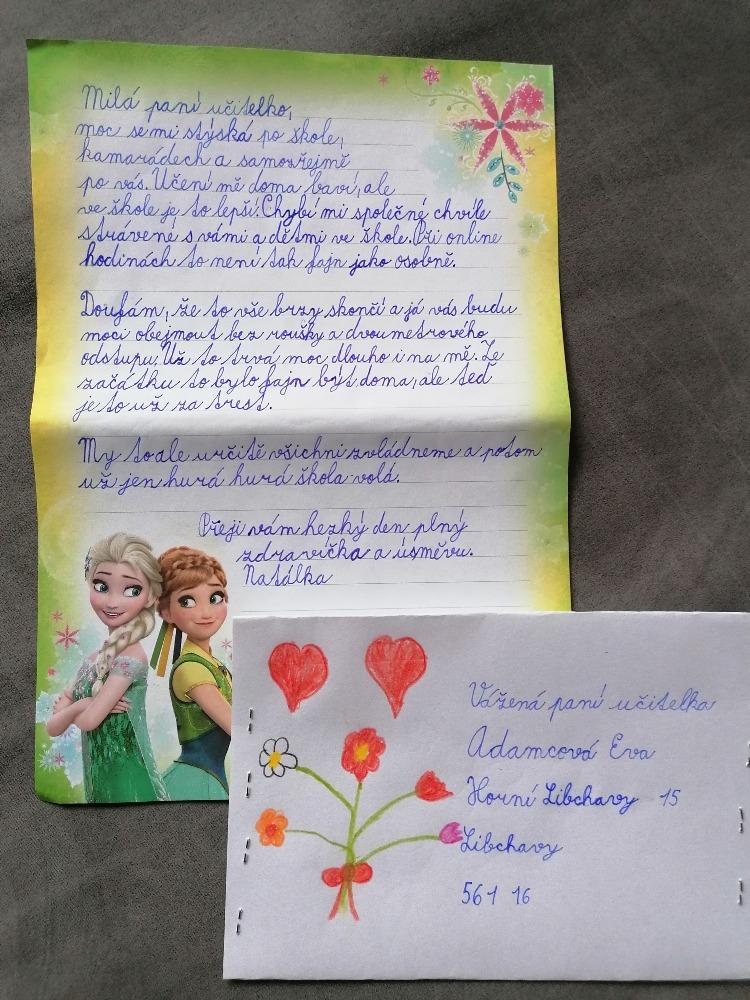 Milá paní učitelko,
moc se mi stýská po škole,
kamarádech a samozřejmě
po vás. Učení mě doma baví, ale
ve škole je to lepší. Chybí mi společné chvíle
strávené s vámi a dětmi ve škole. Při online
hodinách to není tak fajn jako osobně.
Doufám, že to vše brzy skončí a já vás budu
moci obejmout bez roušky a dvoumetrového
odstupu. Už to trvá moc dlouho i na mě. Ze
začátku to bylo fajn být doma, ale teď
je to už za trest.
My to ale určitě všichni zvládneme a potom
už jen hurá hurá škola volá.
Přeji vám hezký den plný
zdravíčka a úsměvu.
Natálka
Vážená paní učitelka
Adamcová Eva
Horní Libchavy 15
Libchavy
561 16